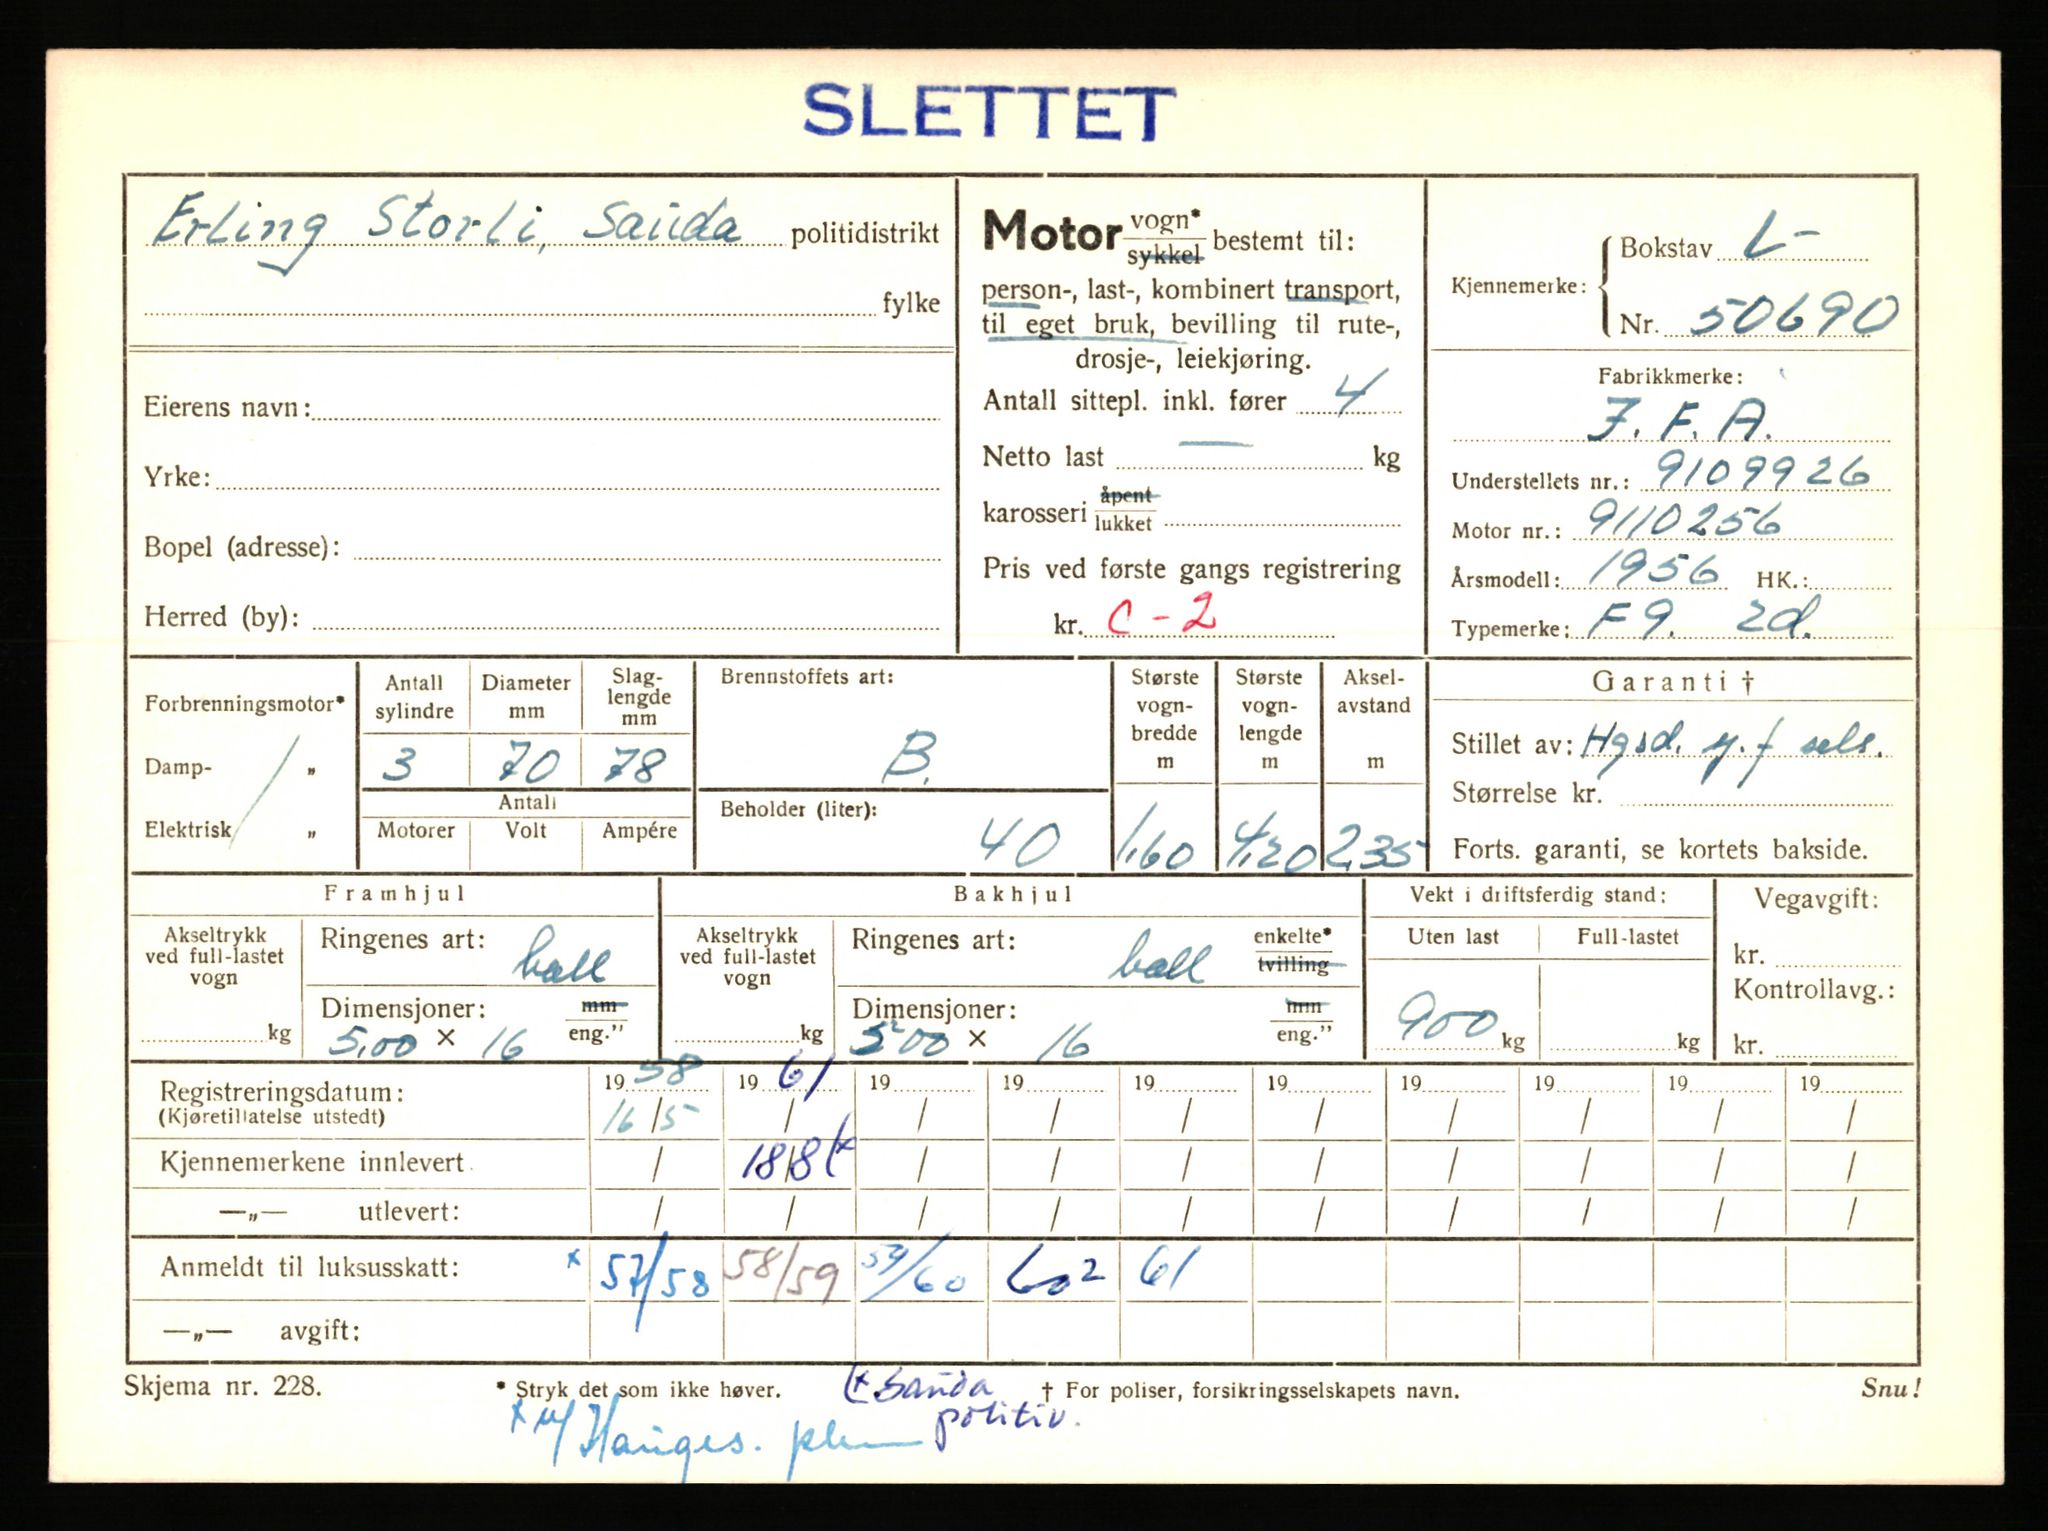 SLETTET
Erling Storli, Sauda politidistrikt
fylke
Eierens navn:
Yrke:
Bopel (adresse):
Herred (by):
Motor vogn* / sykkel bestemt til:
person-, last-, kombinert transport,
til eget bruk, bevilling til rute-,
drosje-, leiekjøring.
Antall sittepl. inkl. fører 4
Netto last — kg
karosseri åpent / lukket
Pris ved første gangs registrering
kr. C-2
Kjennemerke: Bokstav L-
Nr. 50690
Fabrikkmerke:
I. F. A.
Understellets nr.: 9109926
Motor nr.: 9110256
Årsmodell: 1956 HK.:
Typemerke: F 9. 2d.
Forbrenningsmotor*
Damp- „
Elektrisk „
Antall sylindre 3
Diameter mm 70
Slaglengde mm 78
Antall
Motorer Volt Ampére
Brennstoffets art:
B.
Beholder (liter):
40
Største vognbredde m 1,60
Største vognlengde m 4,20
Akselavstand m 2,35
Garanti †
Stillet av: Hgsd. y.f sels.
Størrelse kr.
Forts. garanti, se kortets bakside.
Framhjul
Akseltrykk ved full-lastet vogn kg
Ringenes art: ball
Dimensjoner: mm / eng."
5,00 × 16
Bakhjul
Akseltrykk ved full-lastet vogn kg
Ringenes art: ball enkelte* / tvilling
Dimensjoner: mm / eng."
5,00 × 16
Vekt i driftsferdig stand:
Uten last Full-lastet
900 kg kg
Vegavgift:
kr.
Kontrollavg.:
kr.
Registreringsdatum: 19 58 19 61 19 19 19 19 19 19 19 19
(Kjøretillatelse utstedt) 16/5 / / / / / / / / /
Kjennemerkene innlevert / 18/8 (x / / / / / / / /
—„— utlevert: / / / / / / / / / /
Anmeldt til luksusskatt: x 57/58 58/59 59/60 60² 61
—„— avgift:
Skjema nr. 228. * Stryk det som ikke høver. (x Sauda † For poliser, forsikringsselskapets navn. Snu!
politiv.
x Hauges.